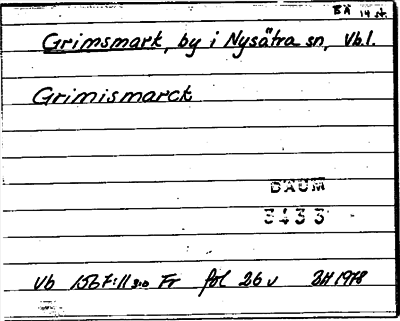 BÄ 14 st.
Grimsmark, by i Nysätra sn, Vb.l.
Grimismarck
DAUM
3433
Vb 1567:11 Fr fol 26 v BH 1978